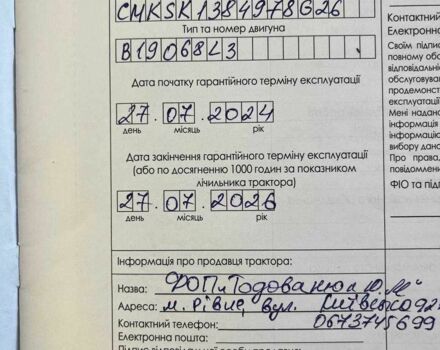 CMKSK1384978G26
Тип та номер двигуна
B19068L3
Дата початку гарантійного терміну експлуатації
27.07.2024
день місяць рік
Дата закінчення гарантійного терміну експлуатації
(або по досягненню 1000 годин за показником
лічильника трактора)
27.07.2026
день місяць рік
Інформація про продавця трактора:
Назва: ФОП Ю.М"
Адреса: м. Рівне, вул.
Контактний телефон: 0673745699
Електронна пошта:
Контактний
Електронна
Своїм підпи
повному обс
відповідальн
обслуговуван
продемонст
експлуатації
Мені надано
інформація
інформацію
вибору дано
Про права,
повідомлени
ФІО та підп